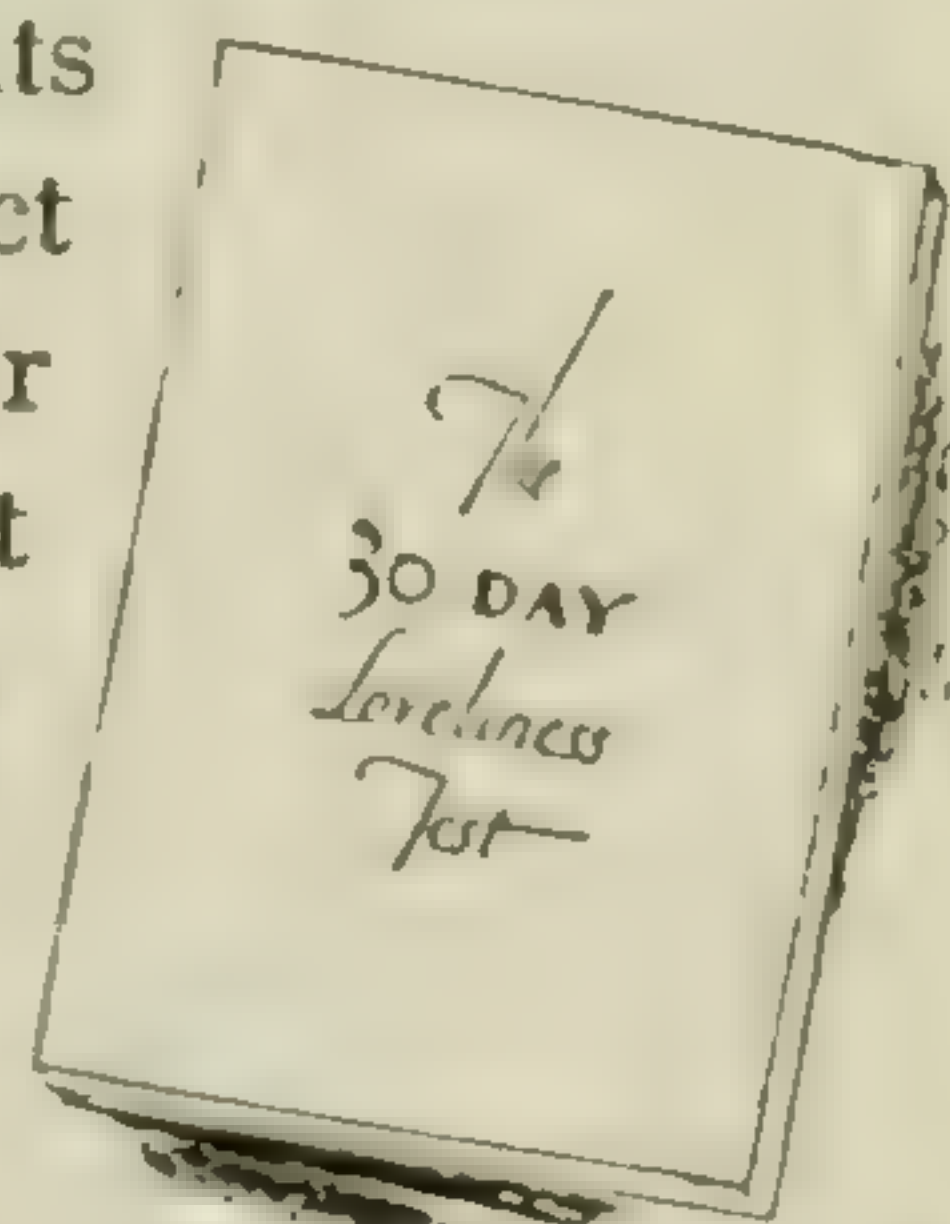 ts
ct
r
t
The
30 DAY
Loveliness
Test